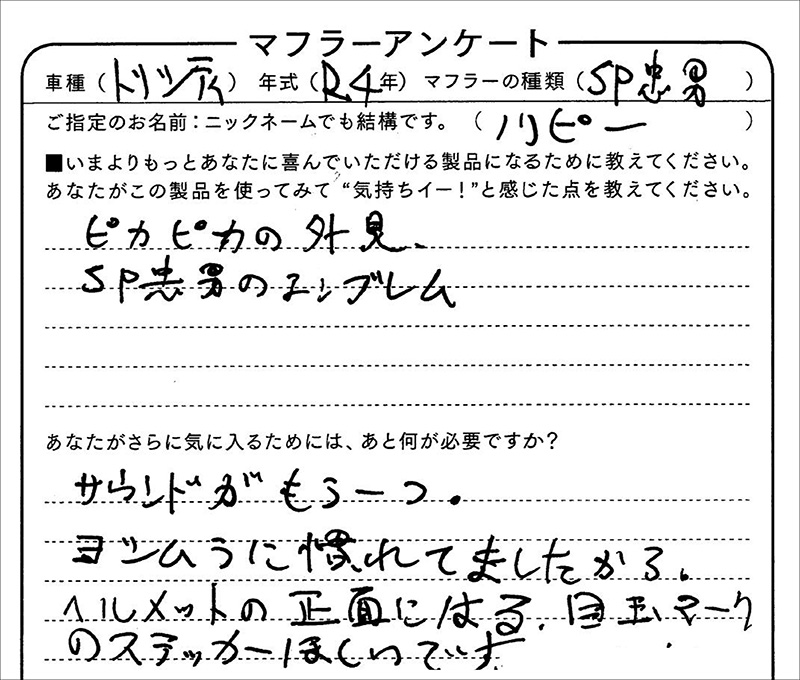 マフラーアンケート
車種（トリシティ） 年式（R4年） マフラーの種類（SP忠男）
ご指定のお名前：ニックネームでも結構です。（ノリピー）
■いまよりもっとあなたに喜んでいただける製品になるために教えてください。
あなたがこの製品を使ってみて“気持ちイー！”と感じた点を教えてください。
ピカピカの外見、
SP忠男のエンブレム
あなたがさらに気に入るためには、あと何が必要ですか？
サウンドがもう一つ。
ヨシムラに慣れてましたから。
ヘルメットの正面にはる、目玉マーク
のステッカーほしいです